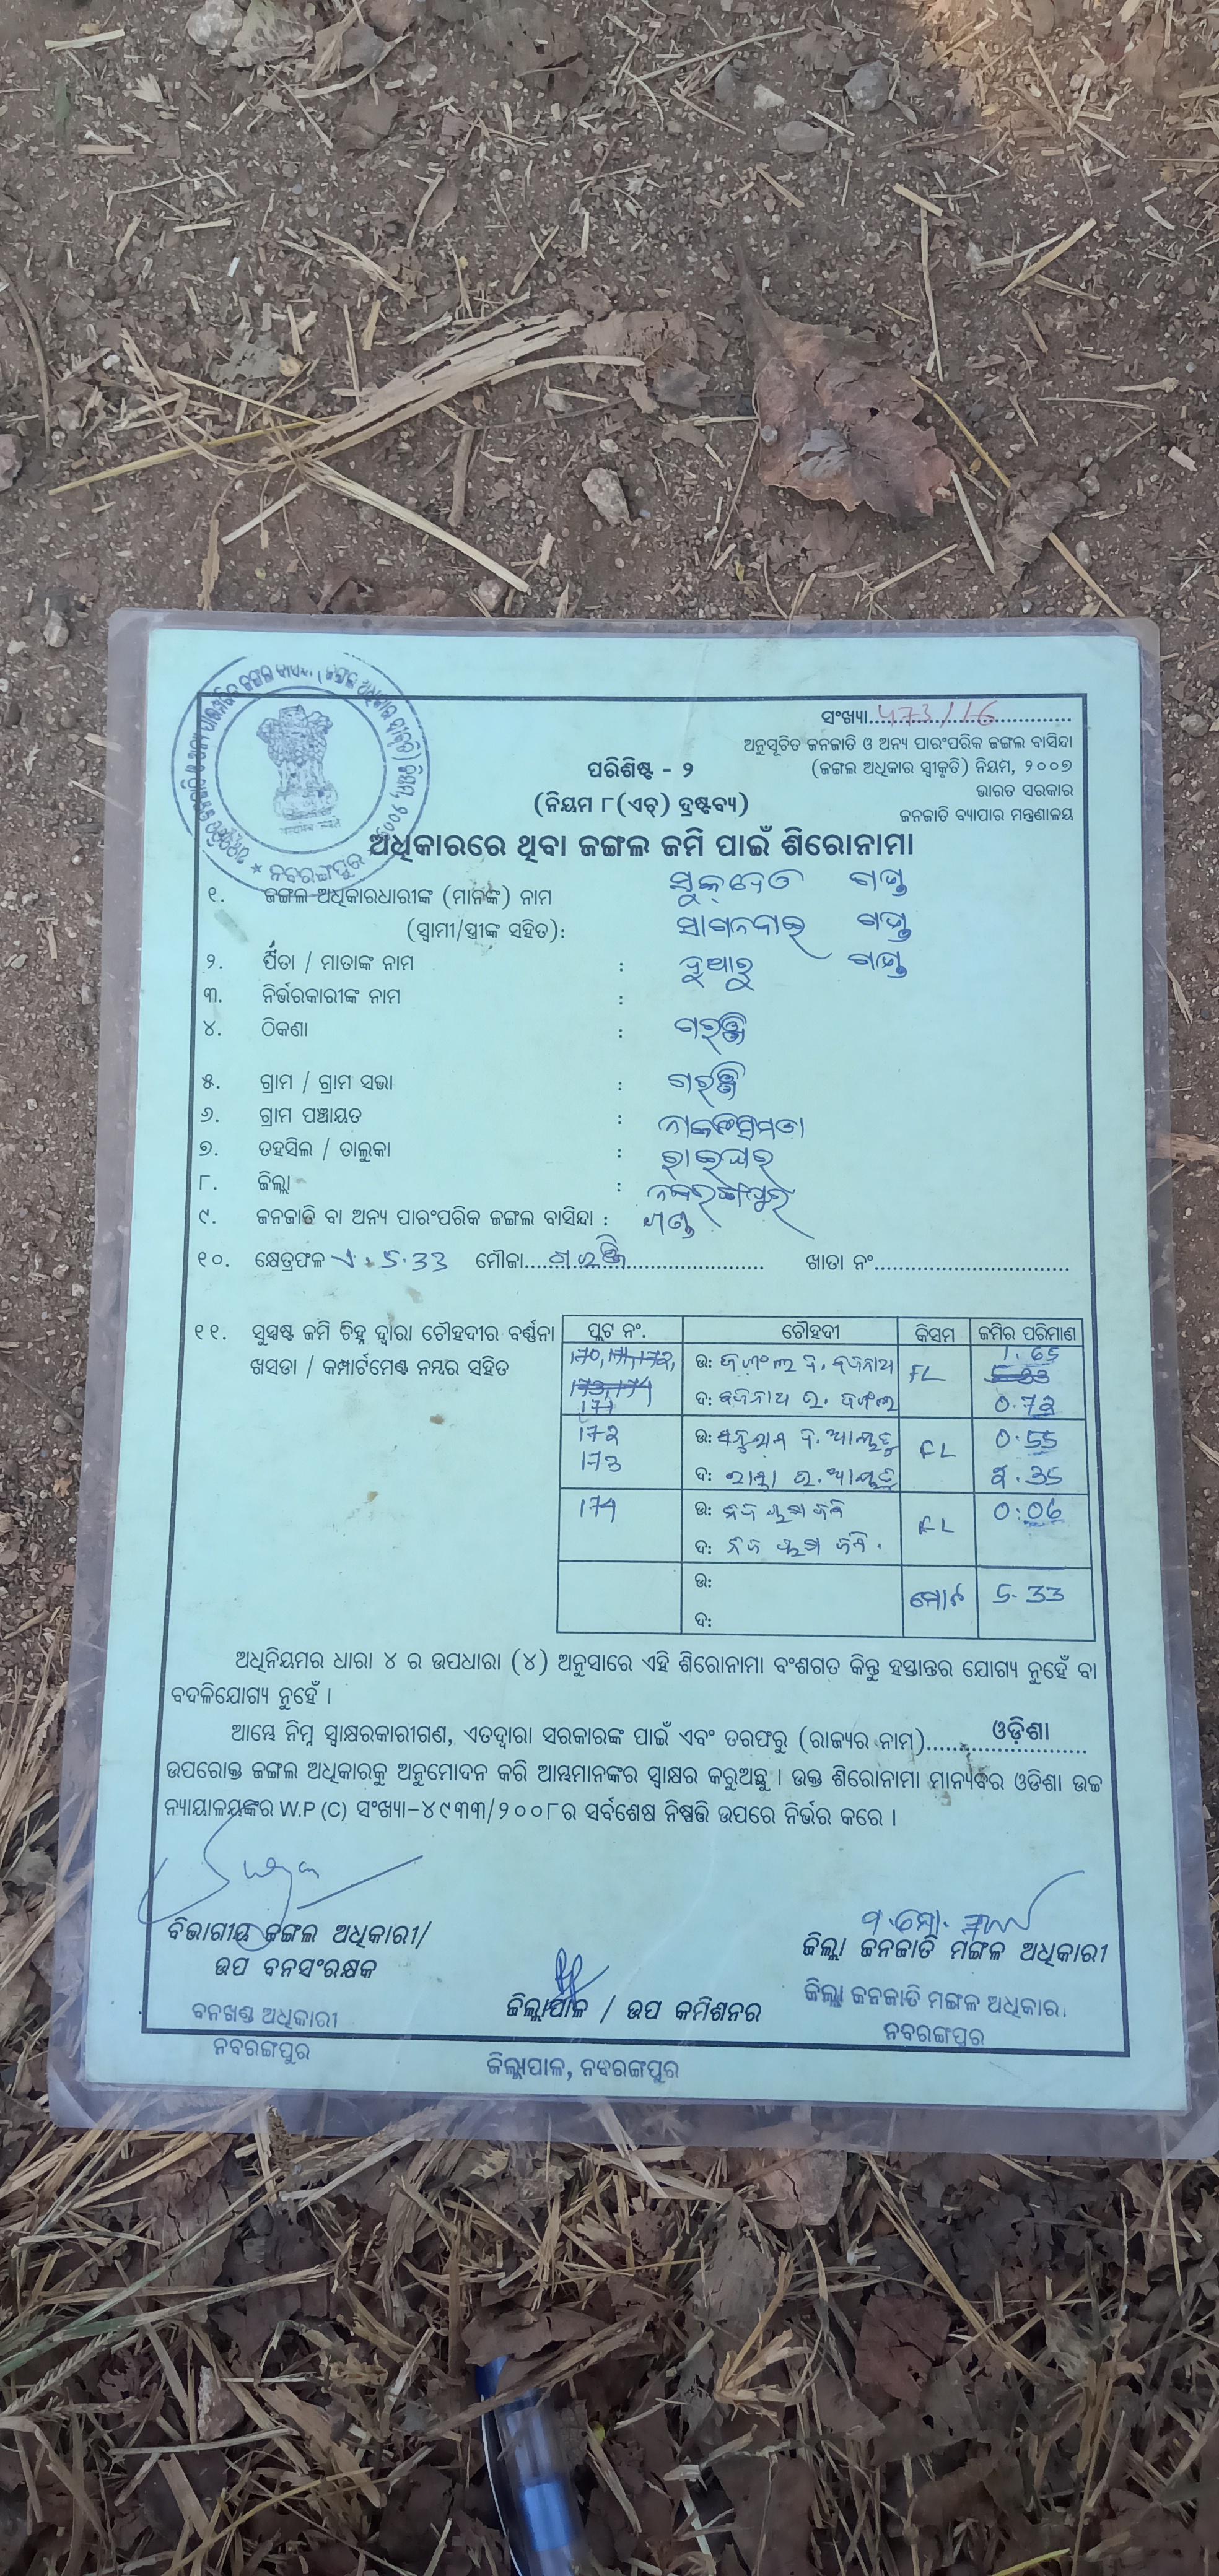 ସଂଖ୍ୟା....473/16....
ଅନୁସୂଚିତ ଜନଜାତି ଓ ଅନ୍ୟ ପାରଂପରିକ ଜଙ୍ଗଲ ବାସିନ୍ଦା
ପରିଶିଷ୍ଟ - ୨
(ଜଙ୍ଗଲ ଅଧିକାର ସ୍ୱୀକୃତି) ନିୟମ, ୨୦୦୭
ଭାରତ ସରକାର
(ନିୟମ ୮(ଏଚ୍) ଦ୍ରଷ୍ଟବ୍ୟ)
ଜନଜାତି ବ୍ୟାପାର ମନ୍ତ୍ରଣାଳୟ
ଅଧିକାରରେ ଥିବା ଜଙ୍ଗଲ ଜମି ପାଇଁ ଶିରୋନାମା
ନବରଙ୍ଗପୁର
୧. ଜଙ୍ଗଲ ଅଧିକାରଧାରୀଙ୍କ (ମାନଙ୍କ) ନାମ ସୁକ୍‌ଦେଓ ଗଣ୍ଡ
(ସ୍ୱାମୀ/ସ୍ତ୍ରୀଙ୍କ ସହିତ): ସାଗନବାଇ ଗଣ୍ଡ
୨. ପିତା / ମାତାଙ୍କ ନାମ : ଦୁଆରୁ ଗଣ୍ଡ
୩. ନିର୍ଭରକାରୀଙ୍କ ନାମ :
୪. ଠିକଣା :
୫. ଗ୍ରାମ / ଗ୍ରାମ ସଭା :
୬. ଗ୍ରାମ ପଞ୍ଚାୟତ :
୭. ତହସିଲ / ତାଲୁକା : ରାଇଘର
୮. ଜିଲ୍ଲା : ନବରଙ୍ଗପୁର
୯. ଜନଜାତି ବା ଅନ୍ୟ ପାରଂପରିକ ଜଙ୍ଗଲ ବାସିନ୍ଦା : ଗଣ୍ଡ
୧୦. କ୍ଷେତ୍ରଫଳ ଏ. 5.33 ମୌଜା........ ଖାତା ନଂ........
୧୧. ସୁସ୍ପଷ୍ଟ ଜମି ଚିହ୍ନ ଦ୍ୱାରା ଚୌହଦୀର ବର୍ଣ୍ଣନା
ଖସଡା / କମ୍ପାର୍ଟମେଣ୍ଟ ନମ୍ବର ସହିତ
ପ୍ଲଟ ନଂ. ଚୌହଦୀ କିସମ ଜମିର ପରିମାଣ
170, 171, 172, ଉ: FL 1.65
173, 174 5.33
171 ଦ: 0.72
172 ଉ: FL 0.55
173 ଦ: 2.35
174 ଉ: ନିଜ ଦଖଲ ଜମି FL 0.06
ଦ: ନିଜ ଦଖଲ ଜମି.
ଉ: ମୋଟ 5.33
ଦ:
ଅଧିନିୟମର ଧାରା ୪ ର ଉପଧାରା (୪) ଅନୁସାରେ ଏହି ଶିରୋନାମା ବଂଶଗତ କିନ୍ତୁ ହସ୍ତାନ୍ତର ଯୋଗ୍ୟ ନୁହେଁ ବା
ବଦଳିଯୋଗ୍ୟ ନୁହେଁ ।
ଆମ୍ଭେ ନିମ୍ନ ସ୍ୱାକ୍ଷରକାରୀଗଣ, ଏତଦ୍ୱାରା ସରକାରଙ୍କ ପାଇଁ ଏବଂ ତରଫରୁ (ରାଜ୍ୟର ନାମ)....ଓଡ଼ିଶା....
ଉପରୋକ୍ତ ଜଙ୍ଗଲ ଅଧିକାରକୁ ଅନୁମୋଦନ କରି ଆମ୍ଭମାନଙ୍କର ସ୍ୱାକ୍ଷର କରୁଅଛୁ । ଉକ୍ତ ଶିରୋନାମା ମାନ୍ୟବର ଓଡିଶା ଉଚ୍ଚ
ନ୍ୟାୟାଳୟଙ୍କର W.P (C) ସଂଖ୍ୟା-୪୯୩୩/୨୦୦୮ର ସର୍ବଶେଷ ନିଷ୍ପତ୍ତି ଉପରେ ନିର୍ଭର କରେ ।
ବିଭାଗୀୟ ଜଙ୍ଗଲ ଅଧିକାରୀ/
ଉପ ବନସଂରକ୍ଷକ
ବନଖଣ୍ଡ ଅଧିକାରୀ
ନବରଙ୍ଗପୁର
ଜିଲ୍ଲାପାଳ / ଉପ କମିଶନର
ଜିଲ୍ଲାପାଳ, ନବରଙ୍ଗପୁର
ଜିଲ୍ଲା ଜନଜାତି ମଙ୍ଗଳ ଅଧିକାରୀ
ଜିଲ୍ଲା ଜନଜାତି ମଙ୍ଗଳ ଅଧିକାରୀ
ନବରଙ୍ଗପୁର